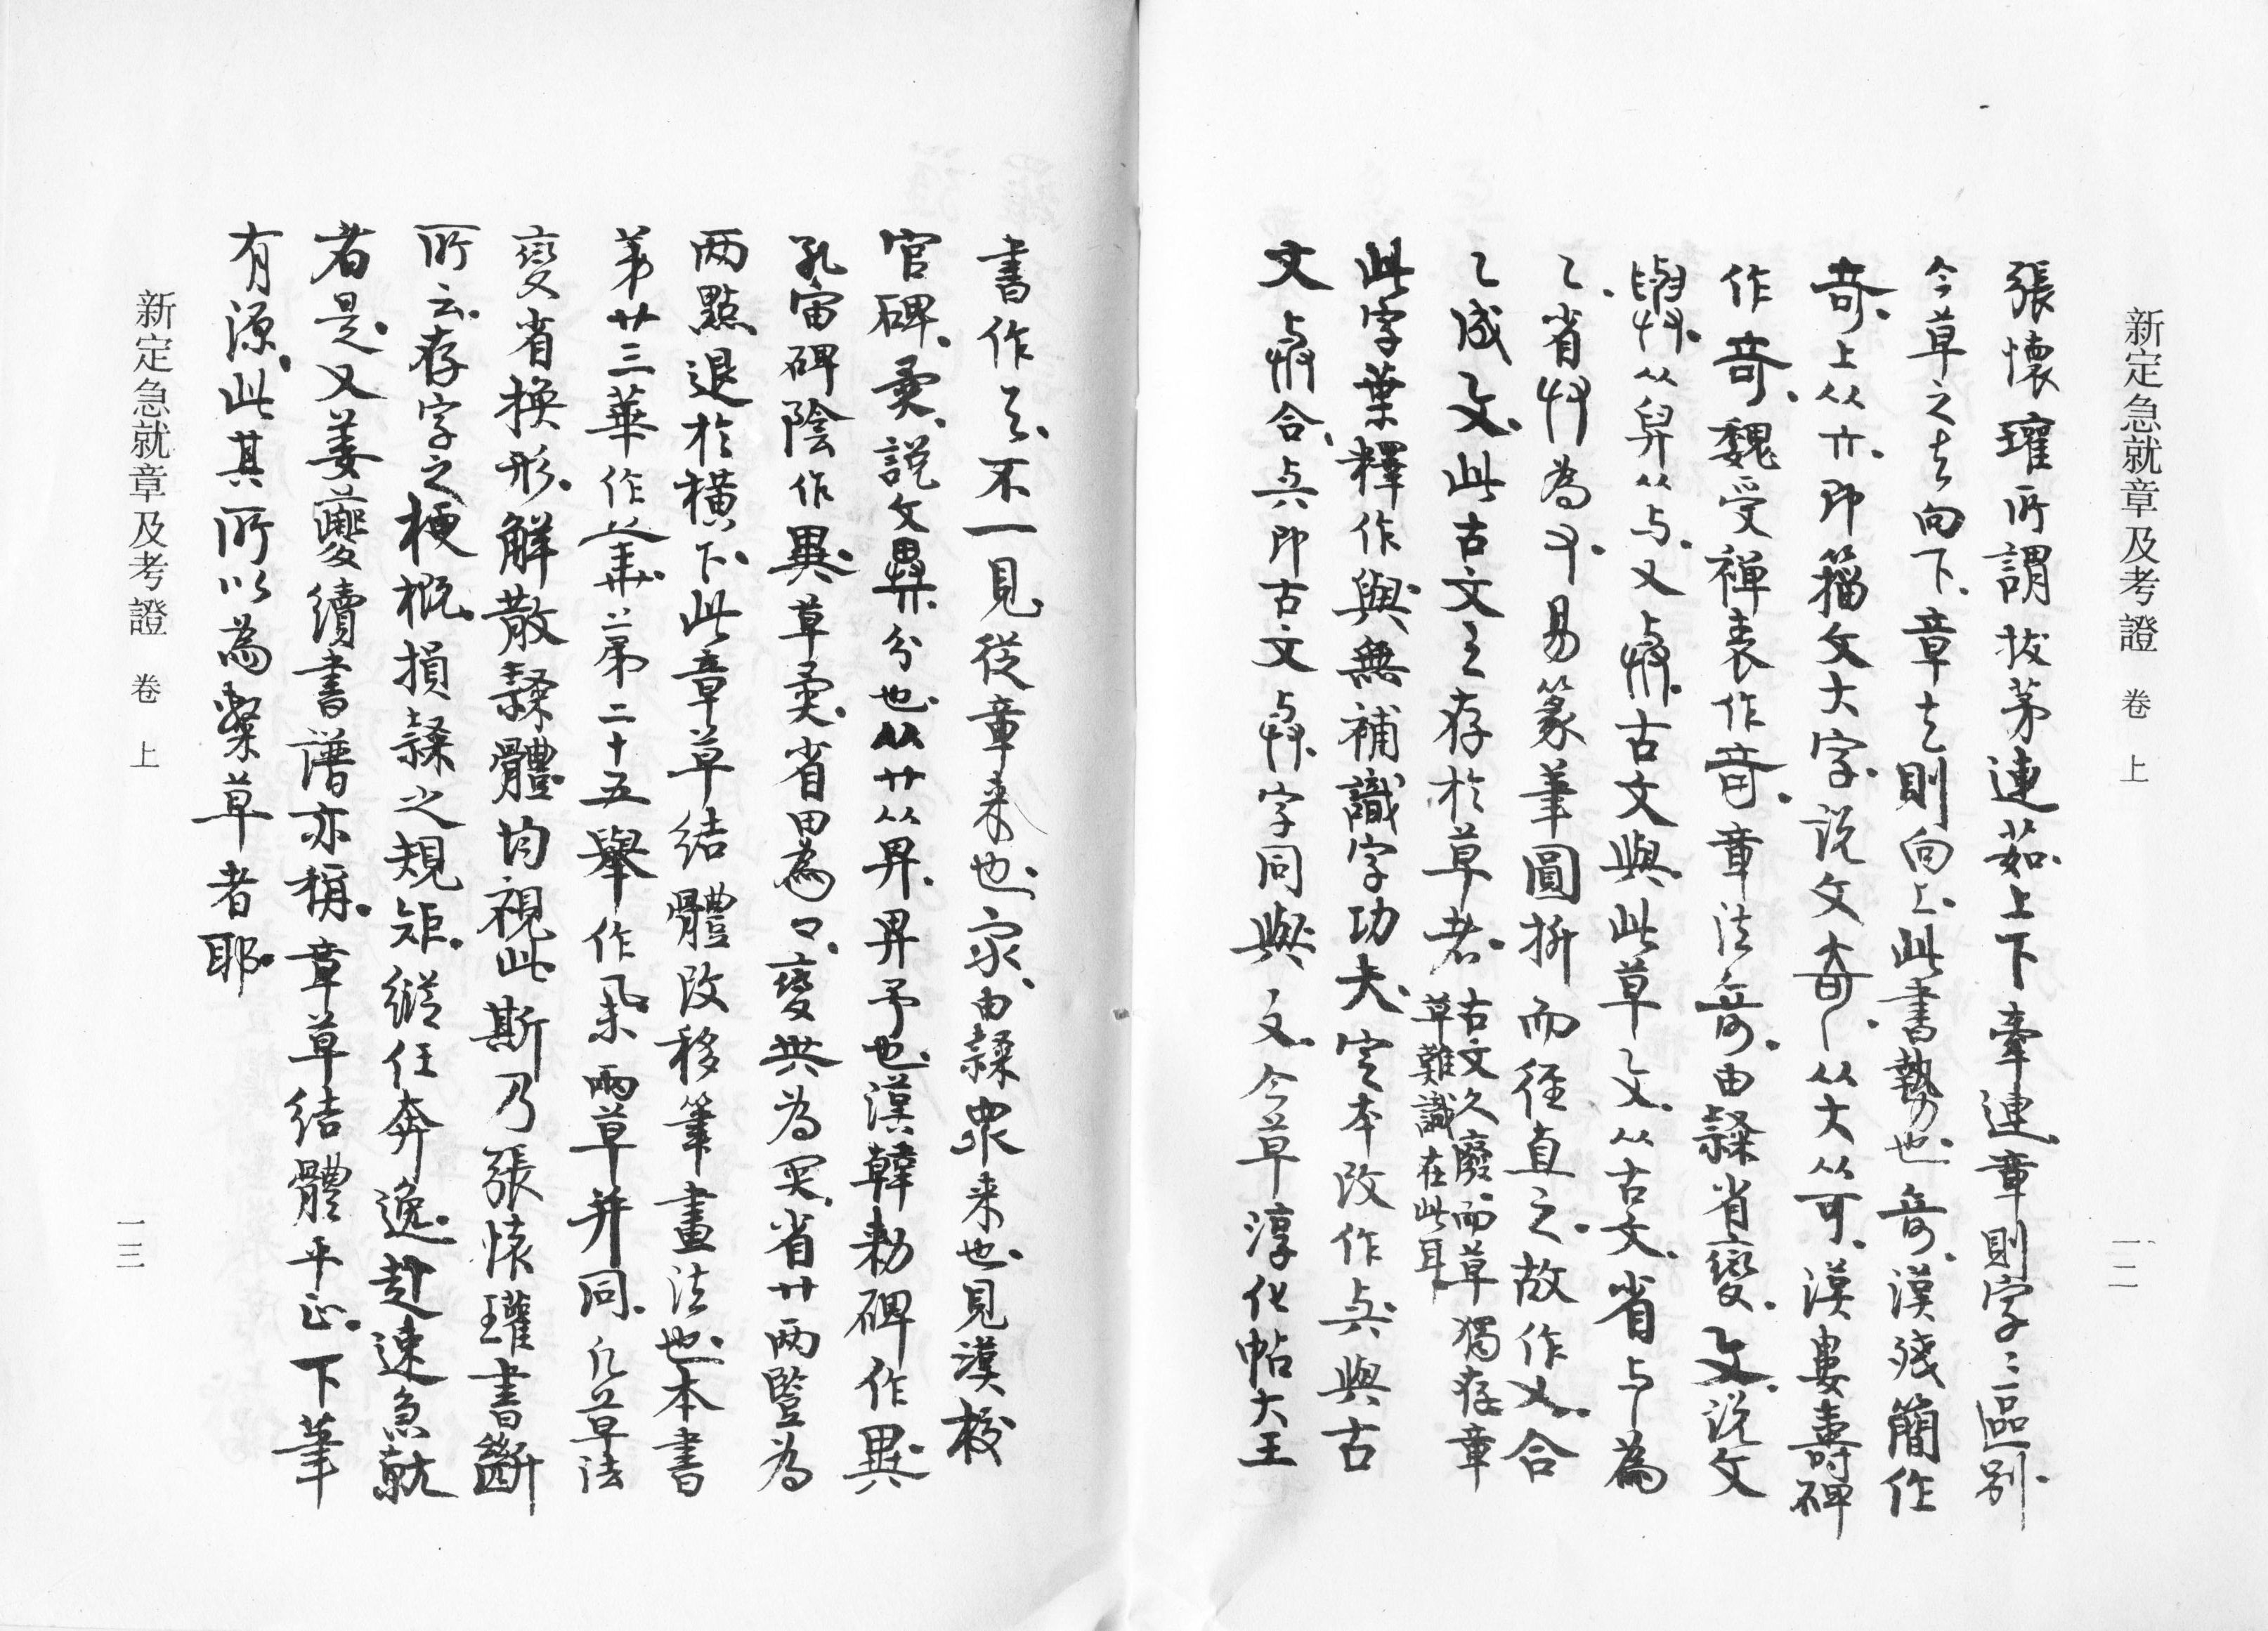 新定急就章及考證　卷上
一二
張懷瓘所謂拔茅連茹上下牽連章則字〻區別
今草之去向下章去則向上此書勢也漢殘簡作
奇上从亣即籀文大字說文奇从大从可漢婁壽碑
作奇魏受禪表作章法由隸省變說文
从舁从与又古文與此草从古文省与為
省為易篆筆圓折而徑直之故作合
成此古文之存於草者古文久廢而草獨存章
草難識在此耳
此字葉釋作與無補識字功夫定本改作與古
文合即古文字同與今草淳化帖大王
書作不一見從章来也由隸眾来也見漢校
官碑說文分也从廾从畀畀予也漢韓勑碑作異
孔宙碑陰作異草省田為變共為省廾兩豎為
兩點退於橫下此章草結體改移筆畫法也本書
第廿三華作第二十五舉作兩草并同凡章法
變省換形解散隸體均視此斯乃張懷瓘書斷
所云存字之梗概損隸之規矩縱任奔逸赴速急就
者是又姜夔續書譜亦稱章草結體平正下筆
有源此其所以為眾草者耶
新定急就章及考證　卷上
一三